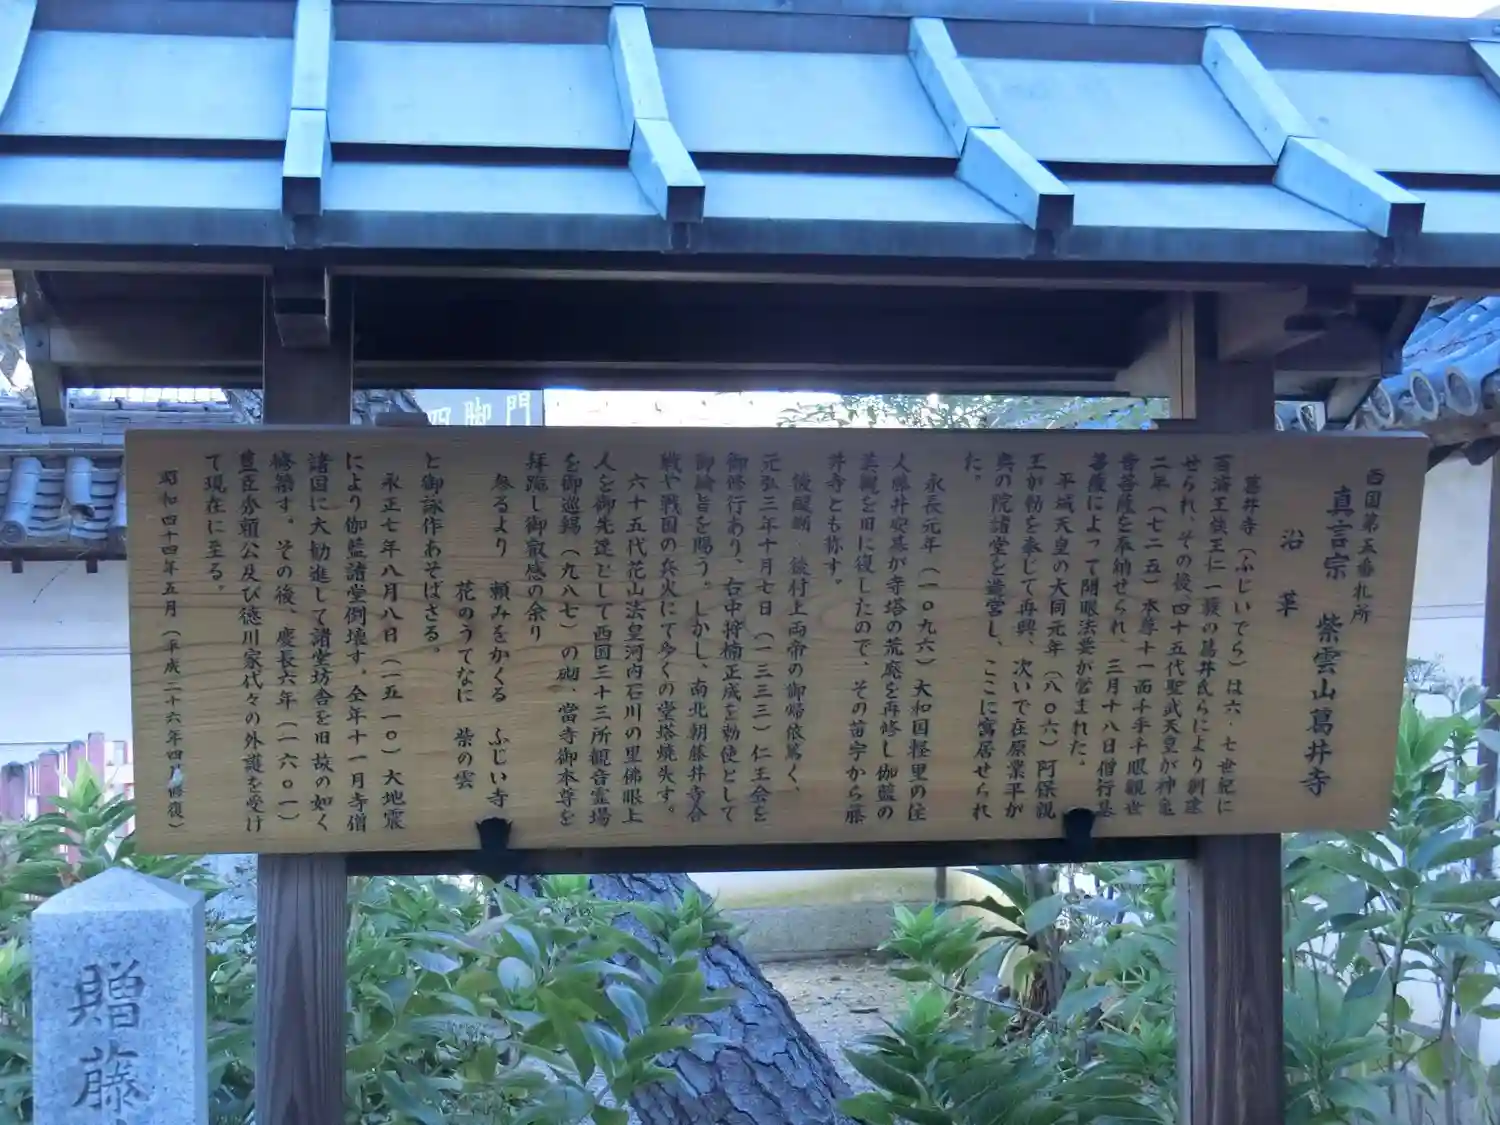 西国第五番札所
真言宗 紫雲山葛井寺
沿革
葛井寺（ふじいでら）は六・七世紀に
百済王族王仁一族の葛井氏らにより創建
せられ、その後、四十五代聖武天皇が神亀
二年（七二五）本尊十一面千手千眼観世
音菩薩を奉納せられ、三月十八日僧行基
菩薩によって開眼法要が営まれた。
平城天皇の大同元年（八〇六）阿保親
王が勅を奉じて再興、次いで在原業平が
奥の院諸堂を造営し、ここに寓居せられ
た。
永長元年（一〇九六）大和国軽里の住
人藤井安基が寺塔の荒廃を再修し伽藍の
美観を旧に復したので、その苗字から藤
井寺とも称す。
後醍醐 後村上両帝の御帰依篤く、
元弘三年十月七日（一三三三）仁王会を
御修行あり、右中将楠正成を勅使として
御綸旨を賜う。しかし、南北朝藤井寺合
戦や戦国の兵火にて多くの堂塔焼失す。
六十五代花山法皇河内石川の里佛眼上
人を御先達として西国三十三所観音霊場
を御巡錫（九八七）の砌、當寺御本尊を
拝跪し御叡感の余り
参るより 頼みをかくる ふじい寺
花のうてなに 紫の雲
と御詠作あそばさる。
永正七年八月八日（一五一〇）大地震
により伽藍諸堂倒壊す。仝年十一月寺僧
諸国に大勧進して諸堂坊舎を旧故の如く
修築す。その後、慶長六年（一六〇一）
豊臣秀頼公及び徳川家代々の外護を受け
て現在に至る。
昭和四十四年五月（平成二十六年四月修復）
四脚門
贈藤